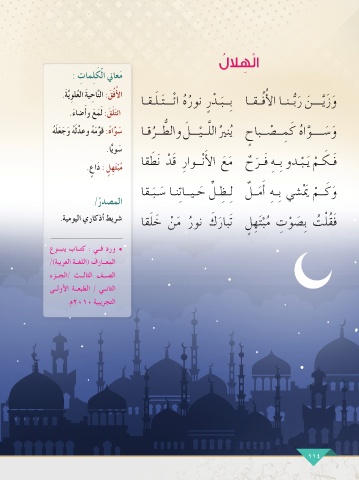 الْهِلالُ
وَزَيَّنَ رَبُّنا الأُفُقا بِبَدْرٍ نورُهُ ائْتَلَقا
وَسَوَّاهُ كَمِصْباحٍ يُنيرُ اللَّيْلَ والطُّرُقا
فَكَمْ يَبْدو بِهِ فَرَحٌ مَعَ الأَنْوارِ قَدْ نَطَقا
وَكَمْ يَمْشي بِهِ أَمَلٌ لِظِلِّ حَياتِنا سَبَقا
فَقُلْتُ بِصَوْتِ مُبْتَهِلٍ تَبارَكَ نورُ مَنْ خَلَقا
مَعاني الْكَلمات :
الأُفُقَ: النّاحيةَ العُلويَّةَ.
ائتلَقَ: لَمَعَ وأَضاءَ.
سَوّاهُ: قوّمَهُ وعدَّلَهُ وَجَعَلَهُ
سَويًّا.
مُبْتَهِلٍ: داعٍ.
المصدر/
شريط أذكاري اليومية.
• ورد في : كتاب ينبوع
المعارف (اللغة العربية)/
الصف الثالث /الجزء
الثاني / الطبعة الأولى
التجريبية ٢٠١٠م.
١١٤